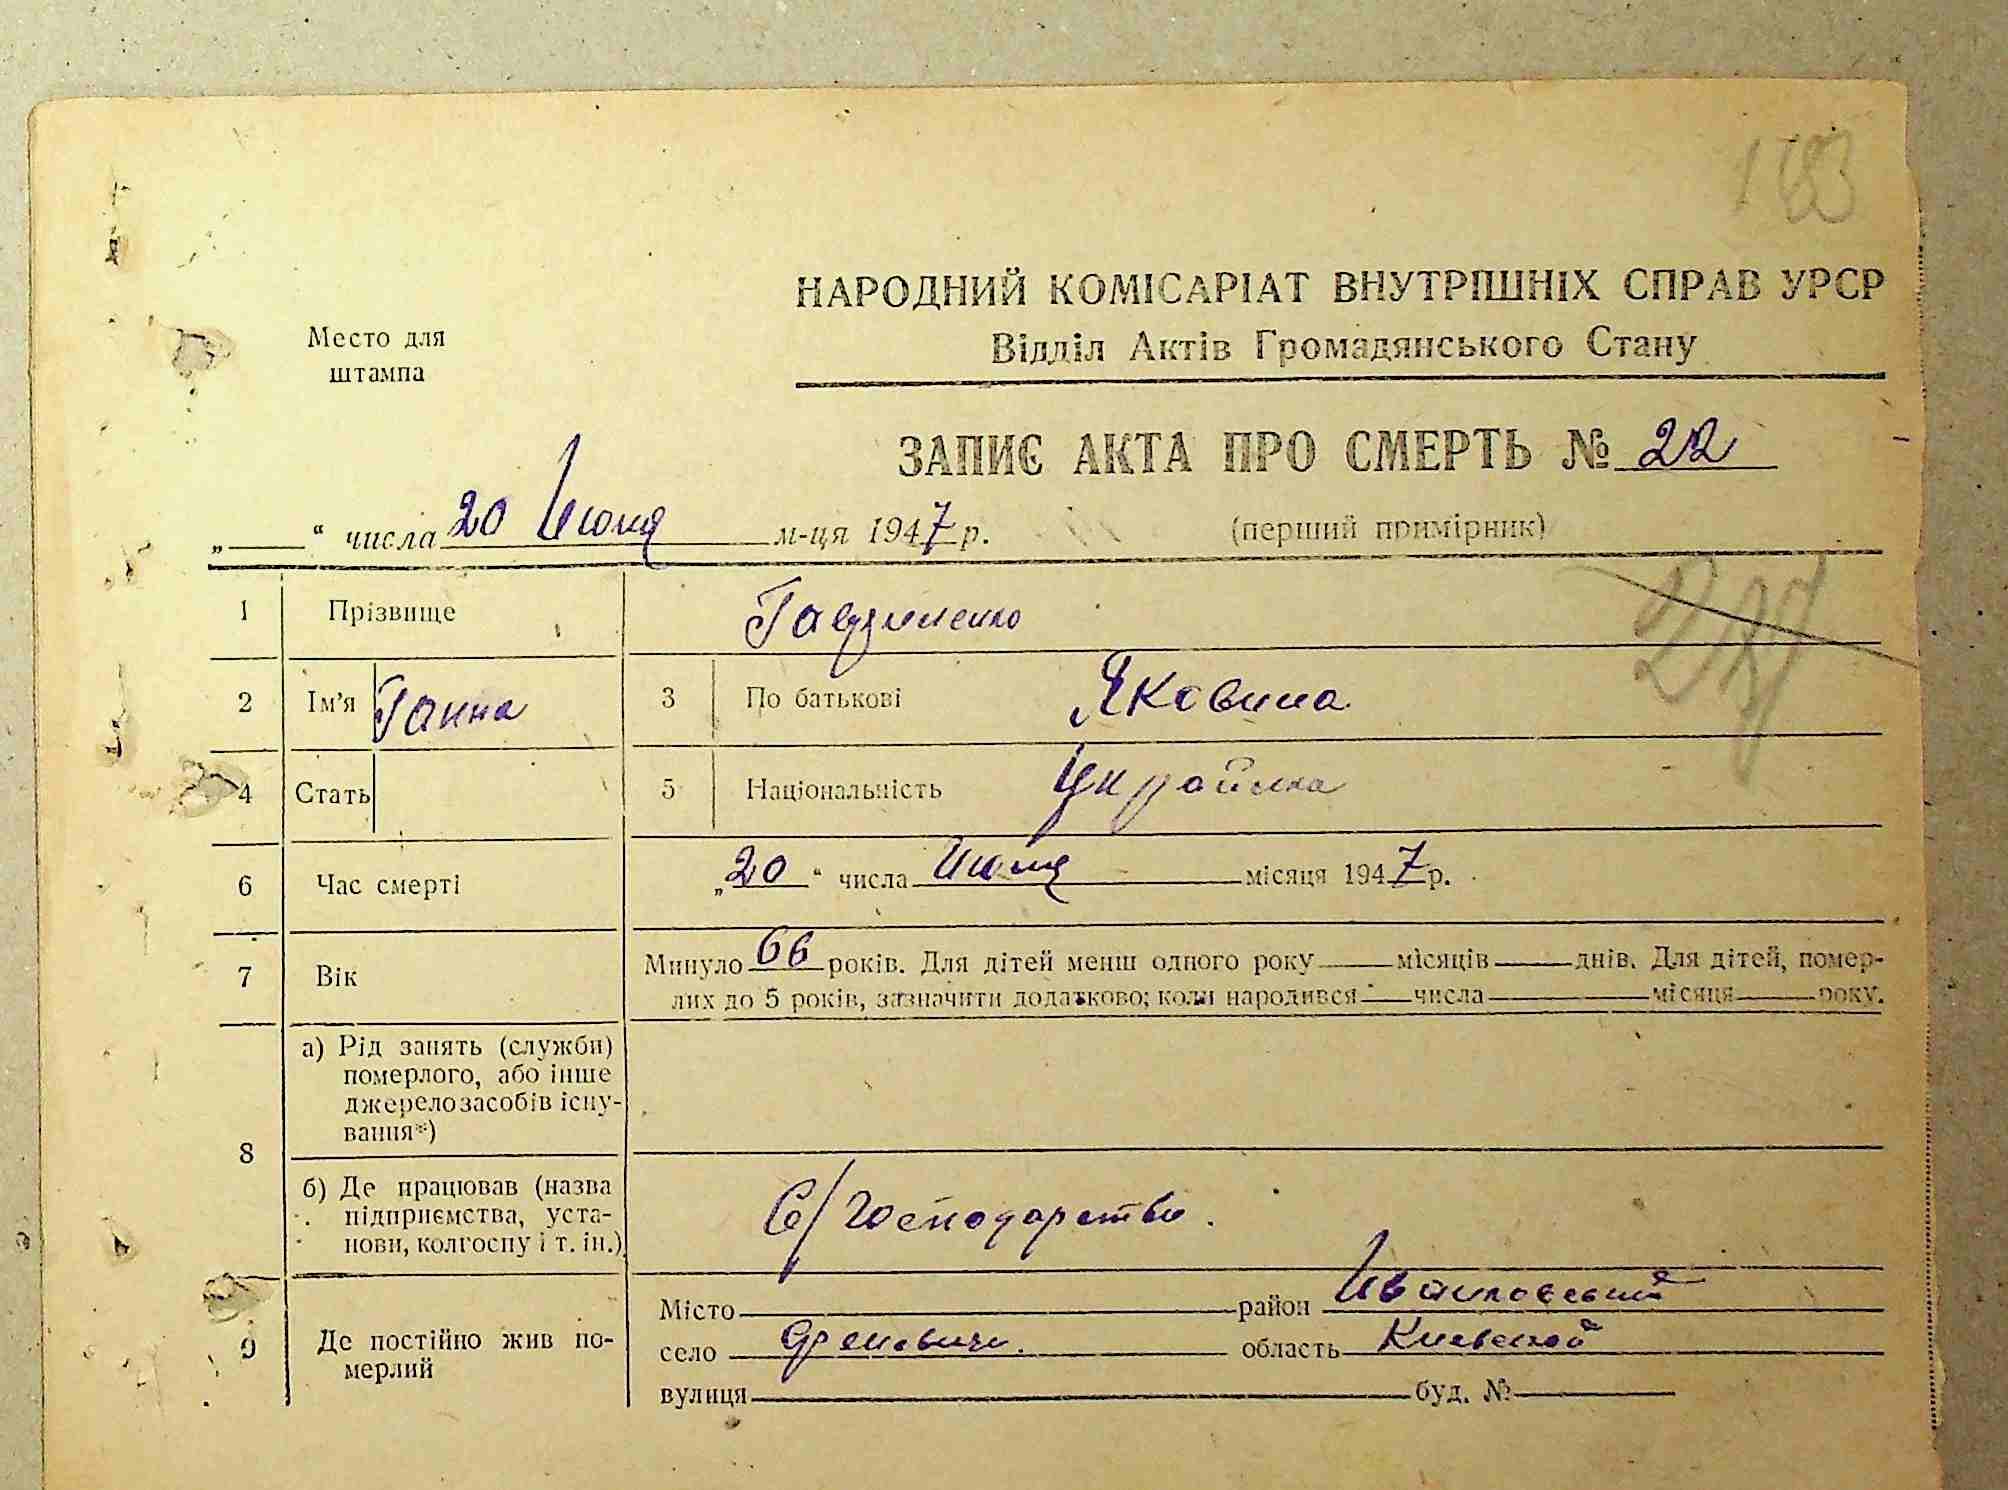 183
НАРОДНИЙ КОМІСАРІАТ ВНУТРІШНІХ СПРАВ УРСР
Место для
штампа
Відділ Актів Громадянського Стану
ЗАПИС АКТА ПРО СМЕРТЬ № 22
„ “ числа 20 Июня м-ця 1947 р. (перший примірник)
1 Прізвище
2 Ім'я Ганна 3 По батькові Яковина
4 Стать 5 Національність Украйинка
6 Час смерті „20“ числа Июня місяця 1947 р.
7 Вік Минуло 66 років. Для дітей менш одного року місяців днів. Для дітей, помер-
лих до 5 років, зазначити додатково; коли народився числа місяця року.
8 а) Рід занять (служби)
померлого, або інше
джерело засобів існу-
вання*)
б) Де працював (назва
підприємства, уста-
нови, колгоспу і т. ін.) С/господарство.
9 Де постійно жив по-
мерлий
Місто район Иванковский
село область Киевской
вулиця буд. №